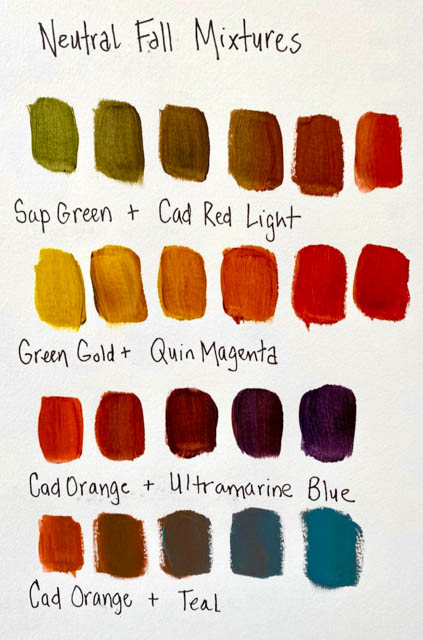 Neutral Fall Mixtures
Sap Green + Cad Red Light
Green Gold + Quin Magenta
Cad Orange + Ultramarine Blue
Cad Orange + Teal